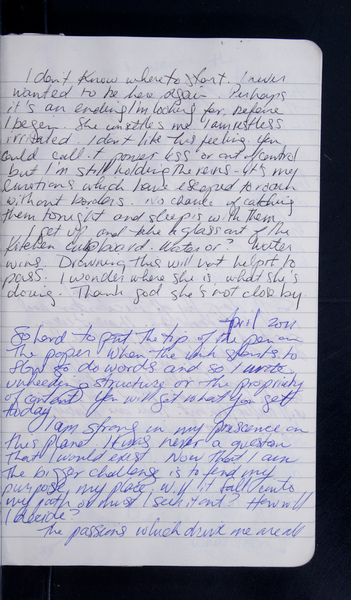 I don't know where to start. I never
wanted to be here again. Perhaps
it's an ending I'm looking for, before
I began. She unsettles me. I am restless
irritated. I don't like this feeling you
could call it power less or out of control
but I'm still holding the reins - it's my
emotions which have escaped to roam
without borders. No chance of catching
them tonight and sleep is with them.
I get up and take a glass out of the
kitchen cupboard. Water or? Water
wins. Drowning this will not help it to
pass. I wonder where she is, what she's
doing. Thank god she's not close by
April 2011
So hard to put the tip of the pen on
the paper! When the ink starts to
flow so do words and so I write
unheeding structure or the propriety
of content. You will get what you get
today.
I am strong in my prescence on
this planet it was never a question
that I would exist. Now that I am
the bigger challenge is to find my
purpose, my place, will it fall into
my path or must I seek it out? How will
I decide?
The passions which drive me are all